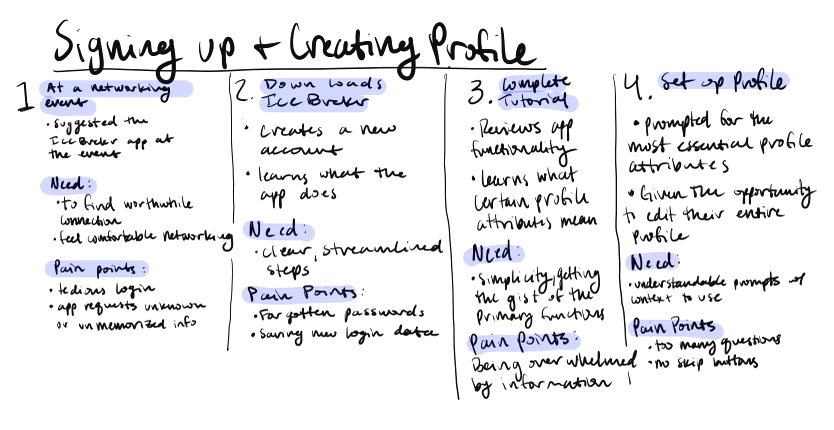 Signing up + Creating Profile
1 At a networking
event
• suggested the
IceBreker app at
the event
Need:
• to find worthwhile
connection
• feel comfortable networking
Pain points:
• tedious login
• app requests unknown
or unmemorized info
2. Down loads
IceBreker
• Creates a new
account
• learns what the
app does
Need:
• clear, streamlined
steps
Pain Points:
• Forgotten passwords
• Saving new login data
3. Complete
Tutorial
• Reviews app
functionality
• Learns what
certain profile
attributes mean
Need:
• Simplicity, getting
the gist of the
Primary functions
Pain points:
Being overwhelmed
by information
4. Set up Profile
• Prompted for the
most essential profile
attributes
• Given the opportunity
to edit their entire
Profile
Need:
• understandable prompts w/
context to use
Pain Points
• too many questions
• no skip buttons